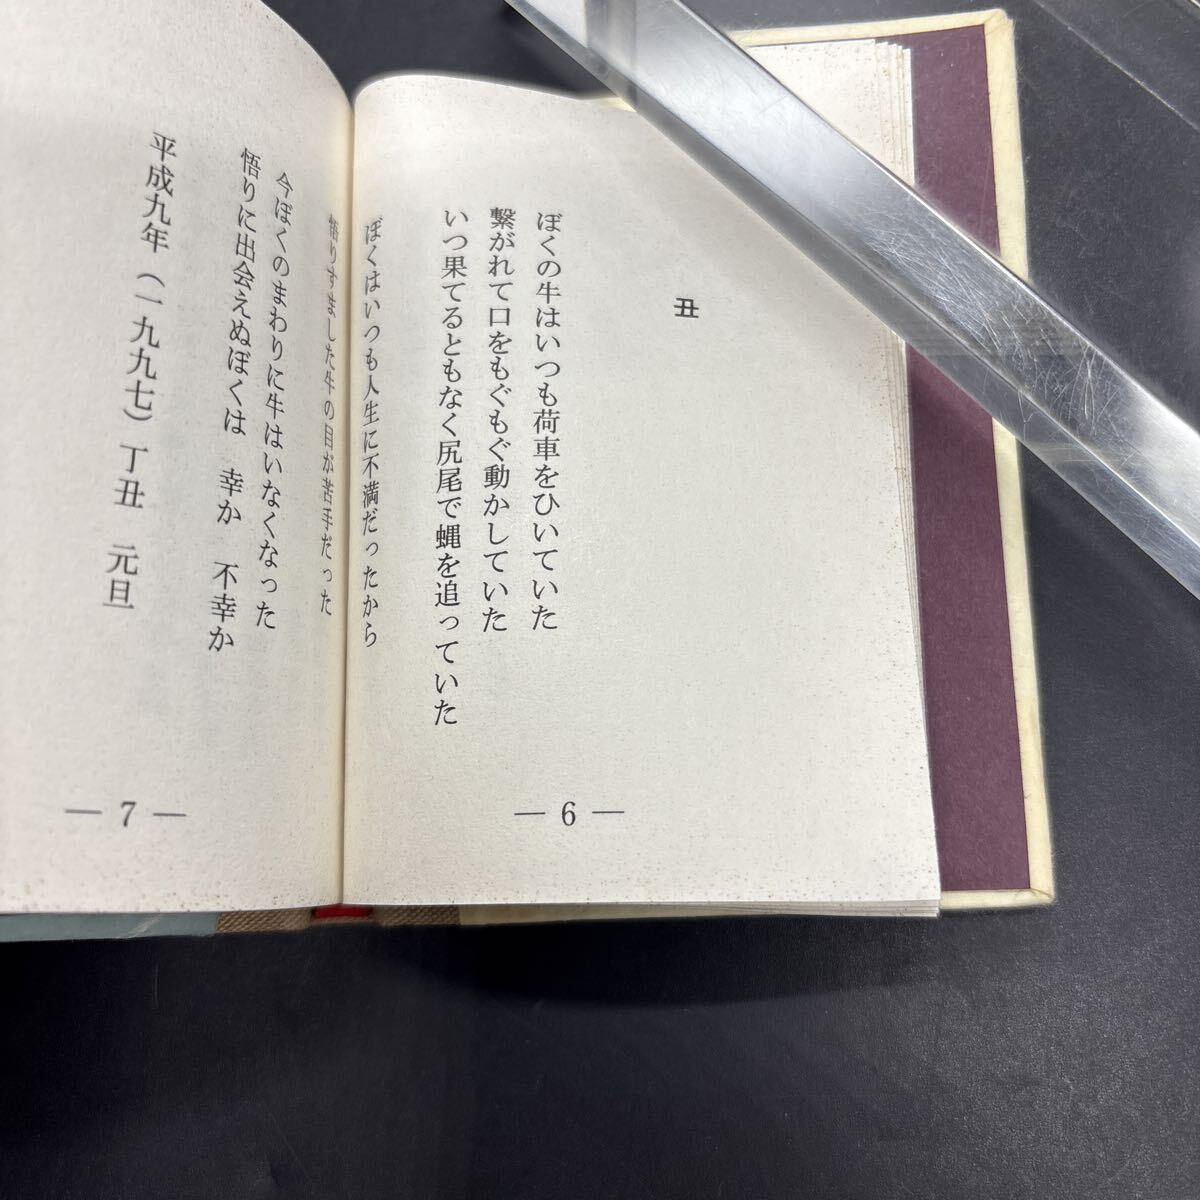 丑
ぼくの牛はいつも荷車をひいていた
繋がれて口をもぐもぐ動かしていた
いつ果てるともなく尻尾で蝿を追っていた
ぼくはいつも人生に不満だったから
悟りすました牛の目が苦手だった
今ぼくのまわりに牛はいなくなった
悟りに出会えぬぼくは　幸か　不幸か
平成九年（一九九七）丁丑　元旦
— 6 —
— 7 —